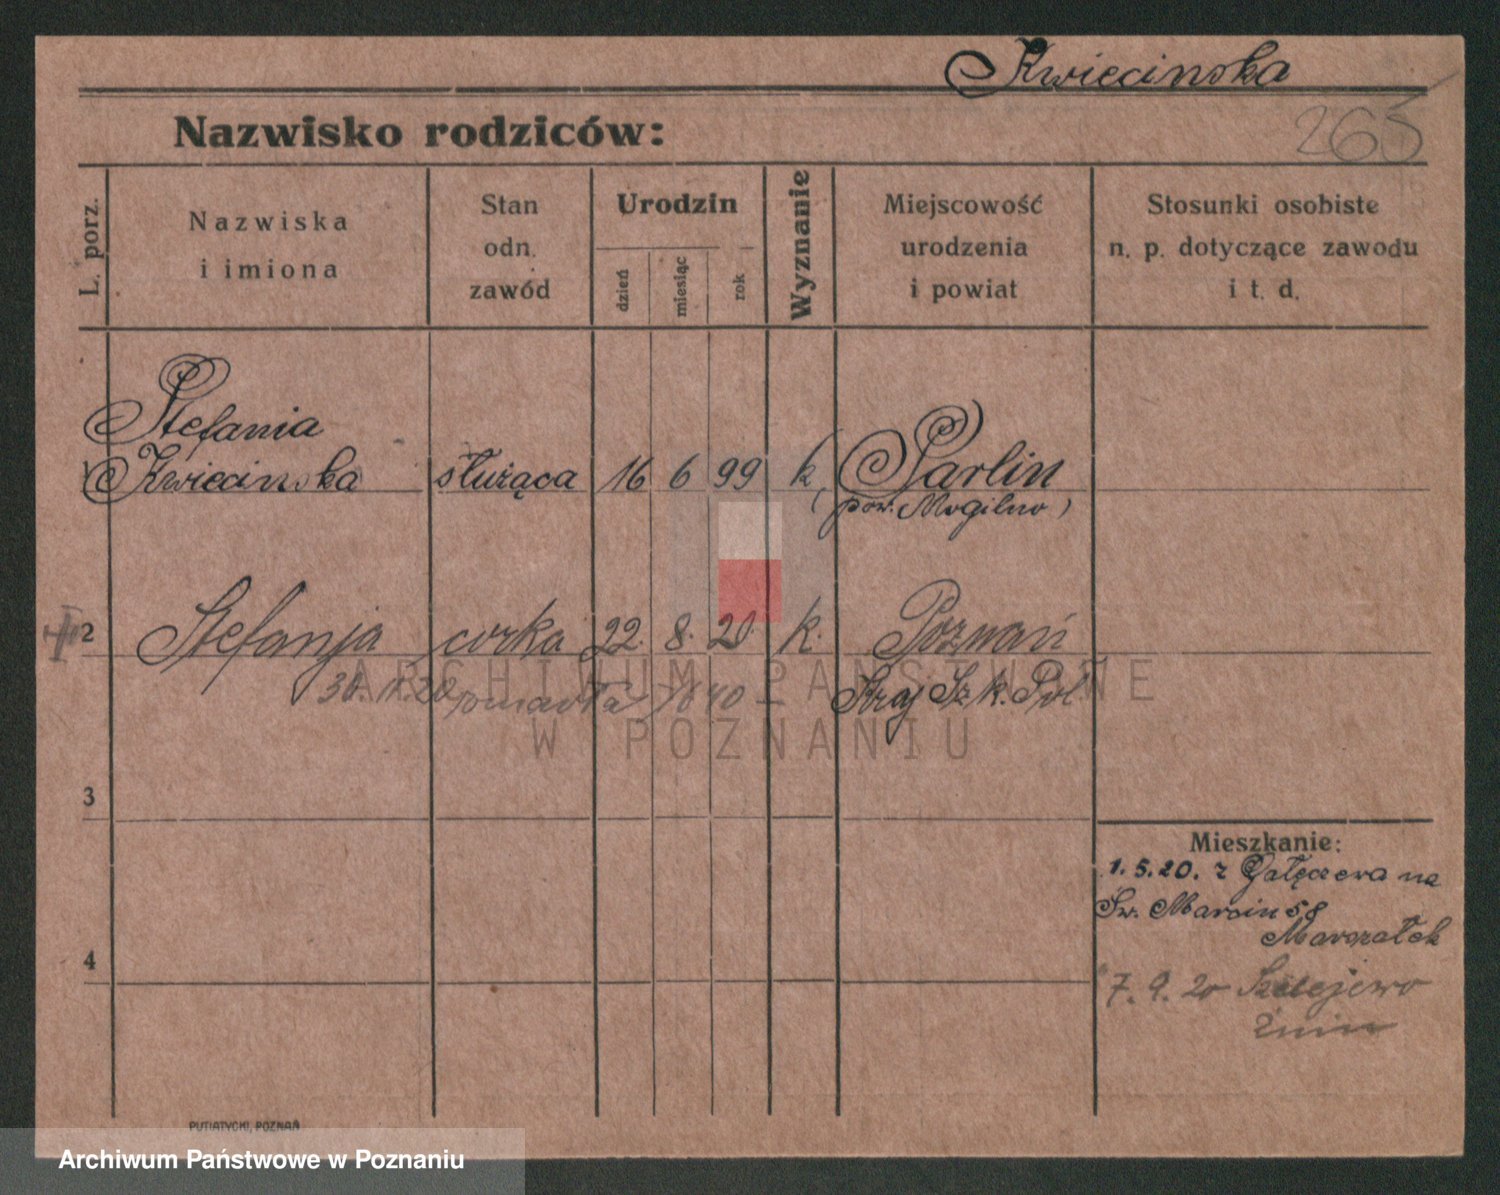 Kwiecinska
Nazwisko rodziców:
265
L. porz.
Nazwiska
i imiona
Stan
odn.
zawód
Urodzin
dzień
miesiąc
rok
Wyznanie
Miejscowość
urodzenia
i powiat
Stosunki osobiste
n. p. dotyczące zawodu
i t. d.
Stefania
1 Kwiecinska służąca 16 6 99 k Parlin
(pow. Mogilno)
2 Stefanja córka 22. 8. 20. k. Poznań
30.11.20 zmarła Kraj Sz. k. Pol.
3
4
Mieszkanie:
1.5.20. z Gałęzewa na
Św. Marcin 58
Marszałek
7.9.20 Szelejewo
Żnin
PUTIATYCKI, POZNAŃ
ARCHIWUM PAŃSTWOWE
W POZNANIU
Archiwum Państwowe w Poznaniu